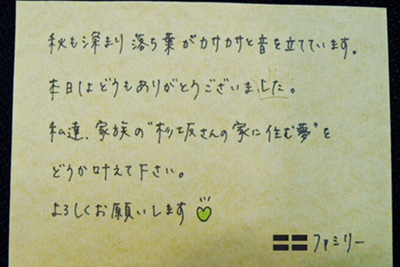 秋も深まり落ち葉がカサカサと音を立てています。
本日はどうもありがとうございました。
私達、家族の"杉坂さんの家に住む夢"を
どうか叶えて下さい。
よろしくお願いします
ファミリー